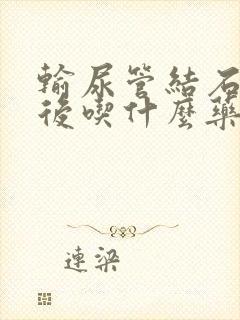 輸尿管結石
後喫什麼藥
連梁